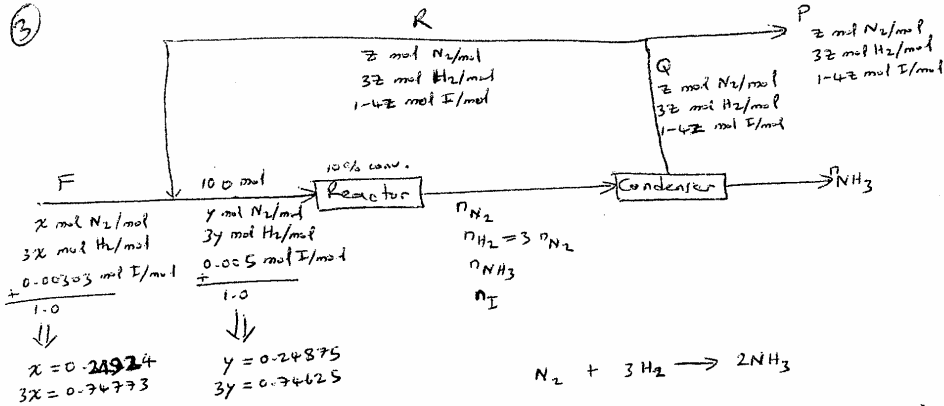 ③
R
z mol N2/mol
3z mol H2/mol
1-4z mol I/mol
P
z mol N2/mol
3z mol H2/mol
1-4z mol I/mol
Q
z mol N2/mol
3z mol H2/mol
1-4z mol I/mol
F
x mol N2/mol
3x mol H2/mol
+ 0.00303 mol I/mol
1.0
⇓
x = 0.24924
3x = 0.74773
100 mol
y mol N2/mol
3y mol H2/mol
0.005 mol I/mol
+
1.0
⇓
y = 0.24875
3y = 0.74625
10% conv.
Reactor
nN2
nH2 = 3 nN2
nNH3
nI
Condenser
nNH3
N2 + 3H2 → 2NH3